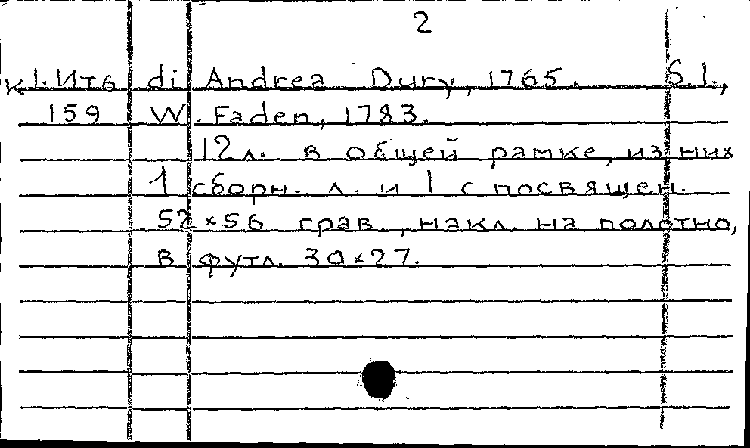 2
к1.Ит6 di Andrea Dury, 1765. S.l.,
159 W. Faden, 1783.
12л. в общей рамке, из них
1 сборн. л. и 1 с посвящен.
52×56 грав., накл. на полотно,
в футл. 30×27.